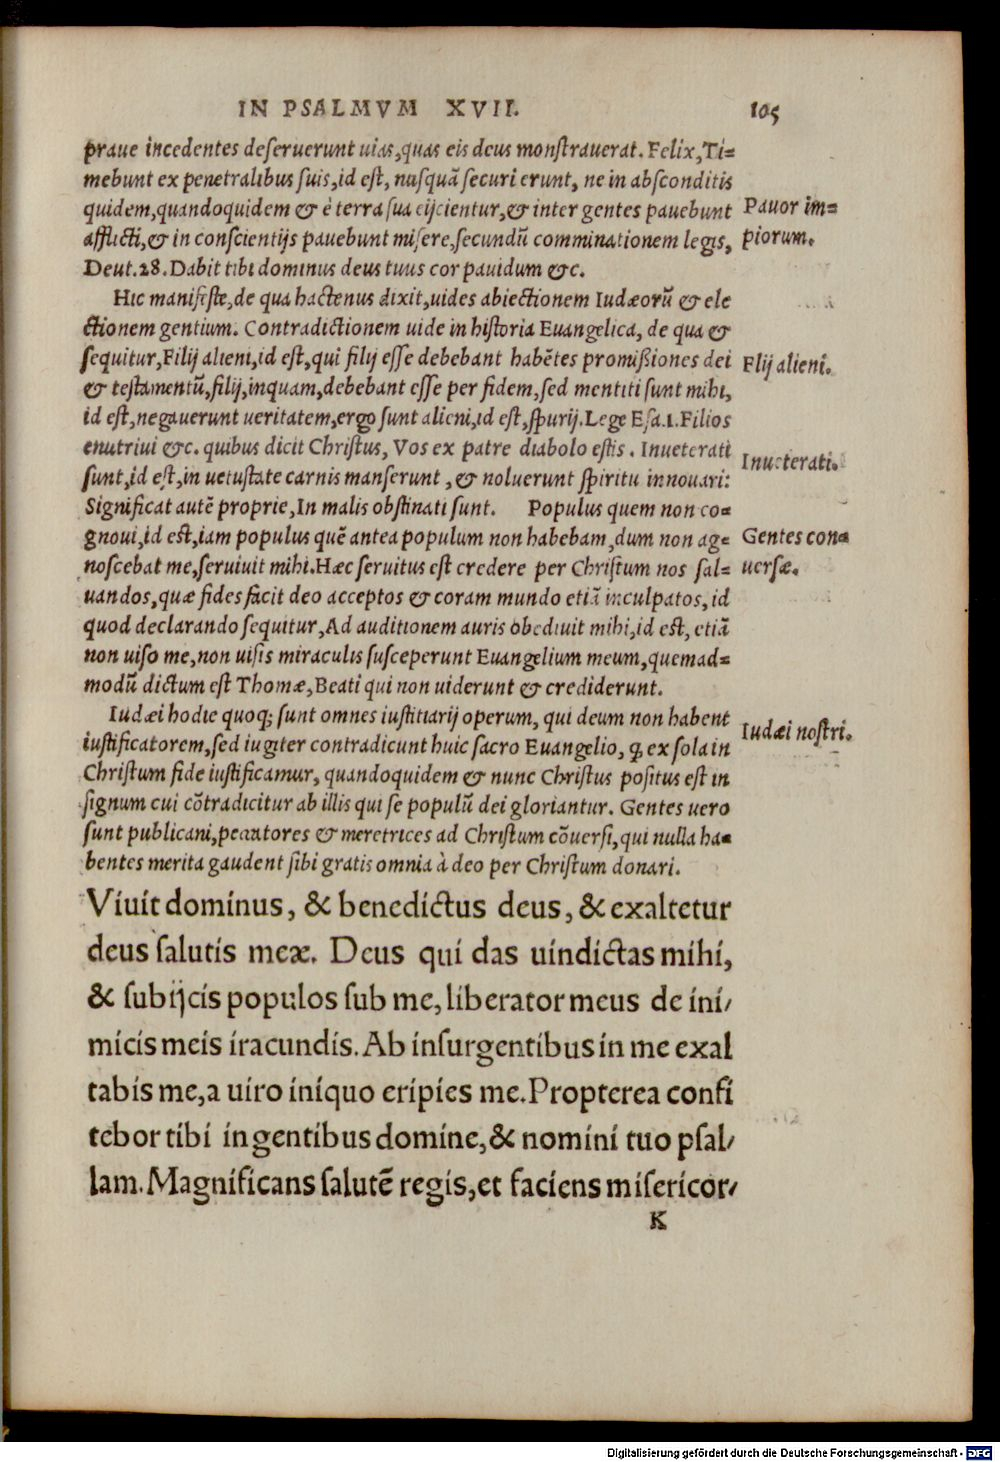 IN PSALMVM XVII. 105
praue incedentes deseruerunt uias, quas eis deus monstrauerat. Felix, Ti=
mebunt ex penetralibus suis, id est, nusquã securi erunt, ne in absconditis
quidem, quandoquidem & è terra sua eijcientur, & inter gentes pauebunt
afflicti, & in conscientijs pauebunt misere, secundũ comminationem legis,
Deut.28. Dabit tibi dominus deus tuus cor pauidum &c.
Pavor im=
piorum.
Hic manifeste, de qua hactenus dixit, uides abiectionem Iudæorũ & ele
ctionem gentium. Contradictionem uide in historia Euangelica, de qua &
sequitur, Filij alieni, id est, qui filij esse debebant habẽtes promißiones dei
& testamentũ, filij, inquam, debebant esse per fidem, sed mentiti sunt mihi,
id est, negauerunt ueritatem, ergo sunt alieni, id est, spurij. Lege Esa.1. Filios
enutriui &c. quibus dicit Christus, Vos ex patre diabolo estis. Inueterati
sunt, id est, in uetustate carnis manserunt, & noluerunt spiritu innouari:
Significat autẽ proprie, In malis obstinati sunt. Populus quem non co=
gnoui, id est, iam populus quẽ antea populum non habebam, dum non ag=
noscebat me, seruiuit mihi. Hæc seruitus est credere per Christum nos sal=
uandos, quæ fides facit deo acceptos & coram mundo etiã inculpatos, id
quod declarando sequitur, Ad auditionem auris obediuit mihi, id est, etiã
non uiso me, non uisis miraculis susceperunt Euangelium meum, quemad=
modũ dictum est Thomæ, Beati qui non uiderunt & crediderunt.
Flij alieni.
Inueterati.
Gentes con=
uersæ.
Iudæi hodie quoq; sunt omnes iustitiarij operum, qui deum non habent
iustificatorem, sed iugiter contradicunt huic sacro Euangelio, ꝙ ex sola in
Christum fide iustificamur, quandoquidem & nunc Christus positus est in
signum cui cõtradicitur ab illis qui se populũ dei gloriantur. Gentes uero
sunt publicani, peccatores & meretrices ad Christum cõuersi, qui nulla ha=
bentes merita gaudent sibi gratis omnia à deo per Christum donari.
Iudæi nostri.
Viuit dominus, & benedictus deus, & exaltetur
deus salutis meæ. Deus qui das uindictas mihi,
& subijcis populos sub me, liberator meus de ini/
micis meis iracundis. Ab insurgentibus in me exal
tabis me, a uiro iniquo eripies me. Propterea confi
tebor tibi in gentibus domine, & nomini tuo psal/
lam. Magnificans salutẽ regis, et faciens misericor/
K
Digitalisierung gefördert durch die Deutsche Forschungsgemeinschaft - DFG